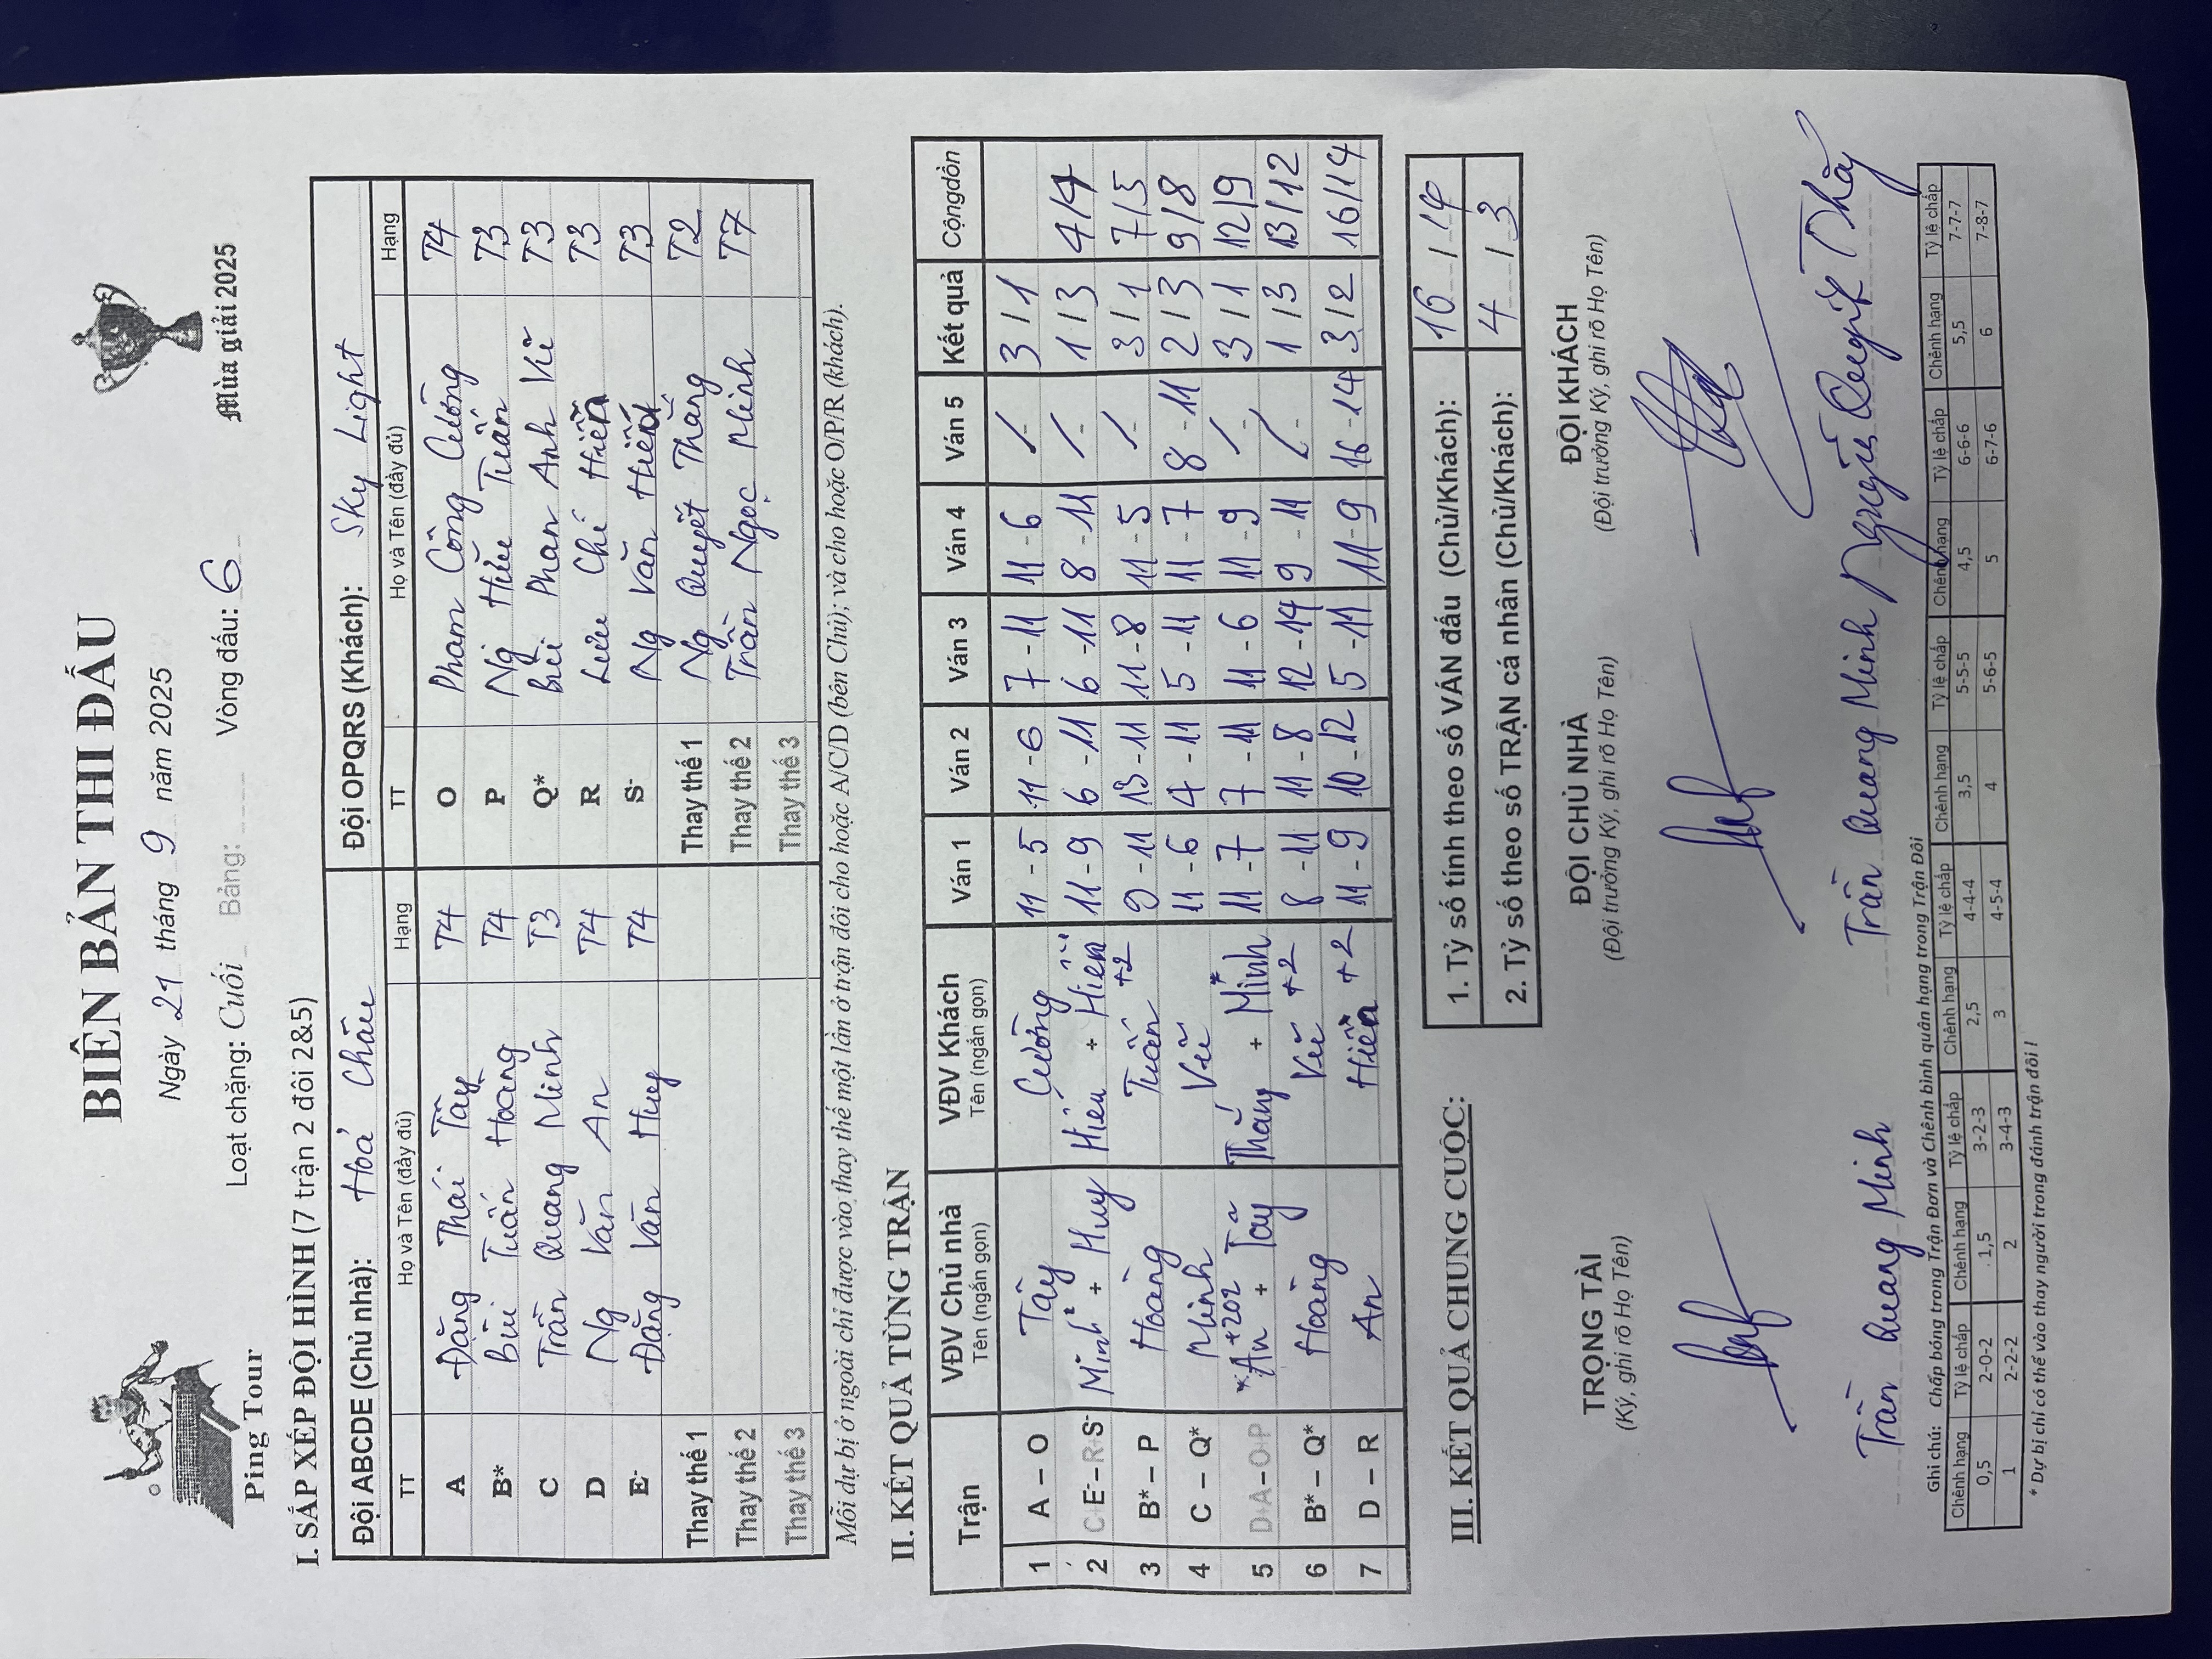 BIÊN BẢN THI ĐẤU
Ngày 21 tháng 9 năm 2025
Ping Tour
Loạt chặng: Cuối Bảng: Vòng đấu: 6
Mùa giải 2025
I. SẮP XẾP ĐỘI HÌNH (7 trận 2 đôi 2&5)
Đội ABCDE (Chủ nhà): Hoá Châu Đội OPQRS (Khách): Sky Light
TT Họ và Tên (đầy đủ) Hạng TT Họ và Tên (đầy đủ) Hạng
A Đặng Thái Tây T4 O Phạm Công Cường T4
B* Bùi Tuấn Hoàng T4 P Ng Hữu Tuấn T3
C Trần Quang Minh T3 Q* Bùi Phan Anh Vũ T3
D Ng Văn An T4 R Lưu Chí Hiển T3
E- Đặng Văn Huy T4 S- Ng Văn Hiếu T3
Thay thế 1 Thay thế 1 Ng Quyết Thắng T2
Thay thế 2 Thay thế 2 Trần Ngọc Minh T7
Thay thế 3 Thay thế 3
Mỗi dự bị ở ngoài chỉ được vào thay thế một lần ở trận đôi cho hoặc A/C/D (bên Chủ); và cho hoặc O/P/R (khách).
II. KẾT QUẢ TỪNG TRẬN
Trận VĐV Chủ nhà Tên (ngắn gọn) VĐV Khách Tên (ngắn gọn) Ván 1 Ván 2 Ván 3 Ván 4 Ván 5 Kết quả Cộng dồn
1 A – O Tây Cường 11 - 5 11 - 6 7 - 11 11 - 6 - 3 / 1
2 C+E- – R+S- Minh + Huy Hiếu + Hiển 11 - 9 6 - 11 6 - 11 8 - 11 - 1 / 3 4/4
3 B* – P Hoàng Tuấn +2 9 - 11 13 - 11 11 - 8 11 - 5 - 3 / 1 7/5
4 C – Q* Minh Vũ 11 - 6 4 - 11 5 - 11 11 - 7 8 - 11 2 / 3 9/8
5 D+A – O+P *An +202 + Tây Thắng + Minh* 11 - 7 7 - 11 11 - 6 11 - 9 - 3 / 1 12/9
6 B* – Q* Hoàng Vũ +2 8 - 11 11 - 8 12 - 14 9 - 11 - 1 / 3 13/12
7 D – R An Hiển +2 11 - 9 10 - 12 5 - 11 11 - 9 16 - 14 3 / 2 16/14
III. KẾT QUẢ CHUNG CUỘC:
1. Tỷ số tính theo số VÁN đấu (Chủ/Khách): 16 / 14
2. Tỷ số theo số TRẬN cá nhân (Chủ/Khách): 4 / 3
TRỌNG TÀI ĐỘI CHỦ NHÀ ĐỘI KHÁCH
(Ký, ghi rõ Họ Tên) (Đội trưởng Ký, ghi rõ Họ Tên) (Đội trưởng Ký, ghi rõ Họ Tên)
Trần Quang Minh Trần Quang Minh Nguyễn Quyết Thắng
Ghi chú: Chấp bóng trong Trận Đơn và Chênh bình quân hạng trong Trận Đôi
Chênh hạng Tỷ lệ chấp Chênh hạng Tỷ lệ chấp Chênh hạng Tỷ lệ chấp Chênh hạng Tỷ lệ chấp Chênh hạng Tỷ lệ chấp Chênh hạng Tỷ lệ chấp
0,5 2-0-2 1,5 3-2-3 2,5 4-4-4 3,5 5-5-5 4,5 6-6-6 5,5 7-7-7
1 2-2-2 2 3-4-3 3 4-5-4 4 5-6-5 5 6-7-6 6 7-8-7
* Dự bị chỉ có thể vào thay người trong đánh trận đôi !